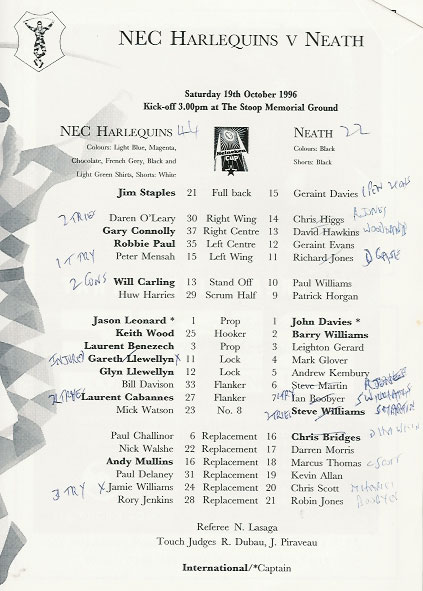 NEC HARLEQUINS V NEATH
Saturday 19th October 1996
Kick-off 3.00pm at The Stoop Memorial Ground
NEC HARLEQUINS 44
Colours: Light Blue, Magenta,
Chocolate, French Grey, Black and
Light Green Shirts, Shorts: White
Heineken
CUP
NEATH 22
Colours: Black
Shorts: Black
Jim Staples 21 Full back 15 Geraint Davies 1 PEN 2 CONS
2 TRIES Daren O'Leary 30 Right Wing 14 Chris Higgs R JONES
Gary Connolly 37 Right Centre 13 David Hawkins WOODLAND
Robbie Paul 35 Left Centre 12 Geraint Evans
1 TRY Peter Mensah 15 Left Wing 11 Richard Jones
2 CONS Will Carling 13 Stand Off 10 Paul Williams
Huw Harries 29 Scrum Half 9 Patrick Horgan
Jason Leonard * 1 Prop 1 John Davies *
Keith Wood 25 Hooker 2 Barry Williams
Laurent Benezech 3 Prop 3 Leighton Gerard
INJURED Gareth Llewellyn X 11 Lock 4 Mark Glover
Glyn Llewellyn 12 Lock 5 Andrew Kembury
Bill Davison 33 Flanker 6 Steve Martin R JONES
2 TRIES Laurent Cabannes 27 Flanker 7 Ian Boobyer S WILLIAMS
Mick Watson 23 No. 8 2 TRIES Steve Williams S MARTIN
Paul Challinor 6 Replacement 16 Chris Bridges D HAWKIN
Nick Walshe 22 Replacement 17 Darren Morris
Andy Mullins 16 Replacement 18 Marcus Thomas C SCOTT
Paul Delaney 31 Replacement 19 Kevin Allan
3 TRY X Jamie Williams 24 Replacement 20 Chris Scott
Rory Jenkins 28 Replacement 21 Robin Jones BOOBYER
Referee N. Lasaga
Touch Judges R. Dubau, J. Piraveau
International/*Captain